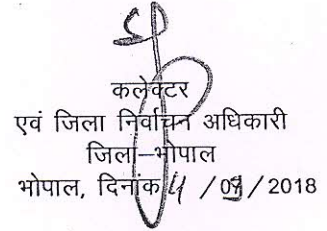 कलेक्टर
एवं जिला निर्वाचन अधिकारी
जिला–भोपाल
भोपाल, दिनांक / 09 / 2018